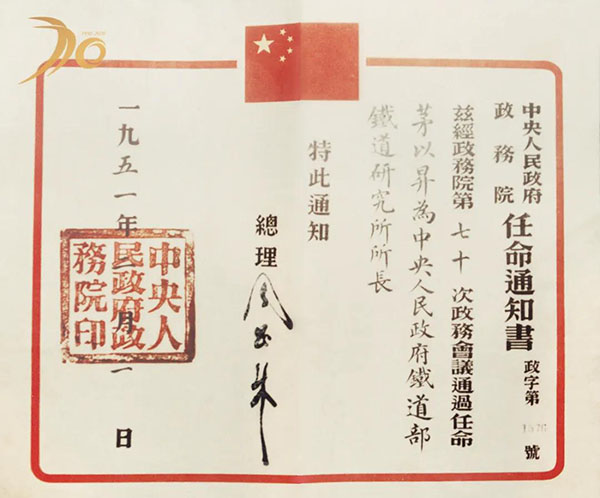 中央人民政府
政務院
任命通知書
政字第 號
茲經政務院第七十次政務會議通過任命
茅以昇為中央人民政府鐵道部
鐵道研究所所長
特此通知
總理 周恩來
一九五一年 月一日
中央人
民政府政
務院印
70